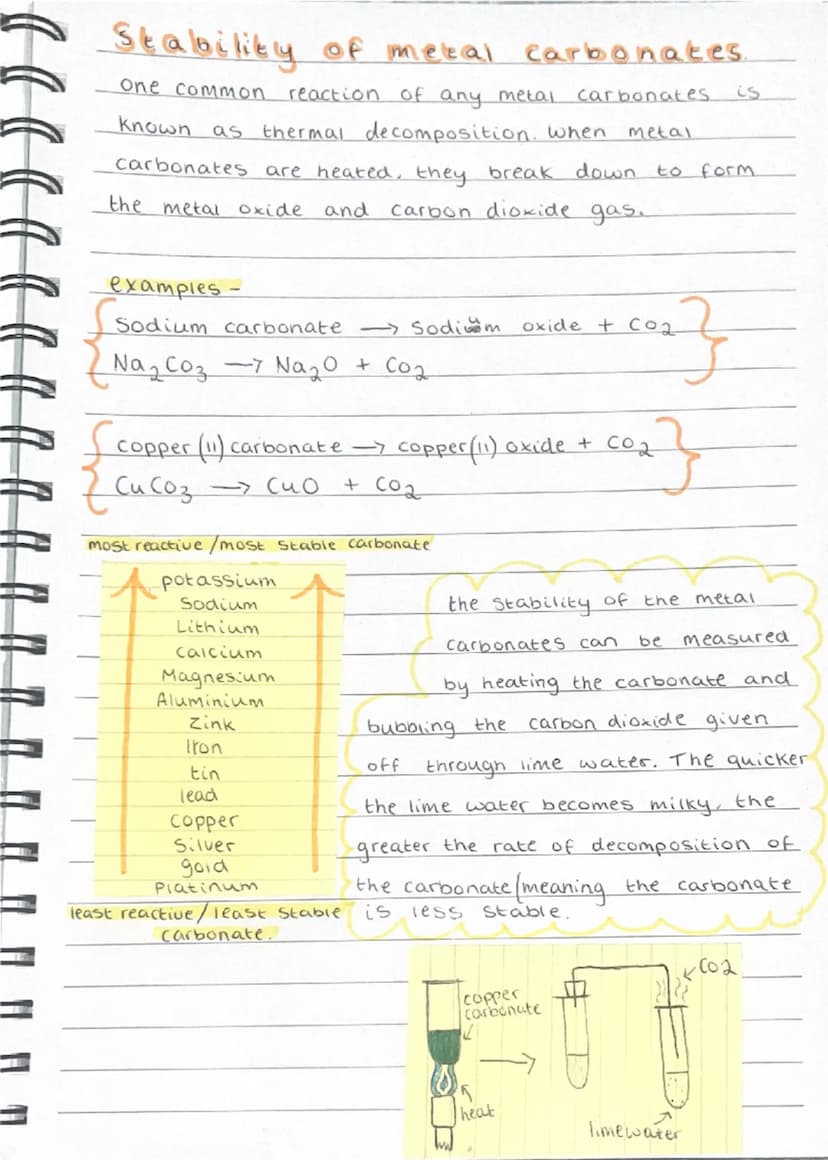 Stability of metal carbonates.
One common reaction of any metal carbonates is
known as thermal decomposition. When metal
carbonates are heated, they break down to form
the metal oxide and carbon dioxide gas.
examples -
Sodium carbonate → Sodium oxide + CO2
Na2CO3 → Na2O + CO2
copper (II) carbonate → copper(II) oxide + CO2
CuCO3 → CuO + CO2
most reactive/most stable carbonate
potassium
Sodium
Lithium
Calcium
Magnesium
Aluminium
Zink
Iron
tin
lead
copper
Silver
gold
Platinum
least reactive/least stable
carbonate.
the stability of the metal
carbonates can be measured
by heating the carbonate and
bubbling the carbon dioxide given
off through lime water. The quicker
the lime water becomes milky, the
greater the rate of decomposition of
the carbonate/meaning the carbonate
is less stable.
copper
carbonate
heat
CO2
limewater